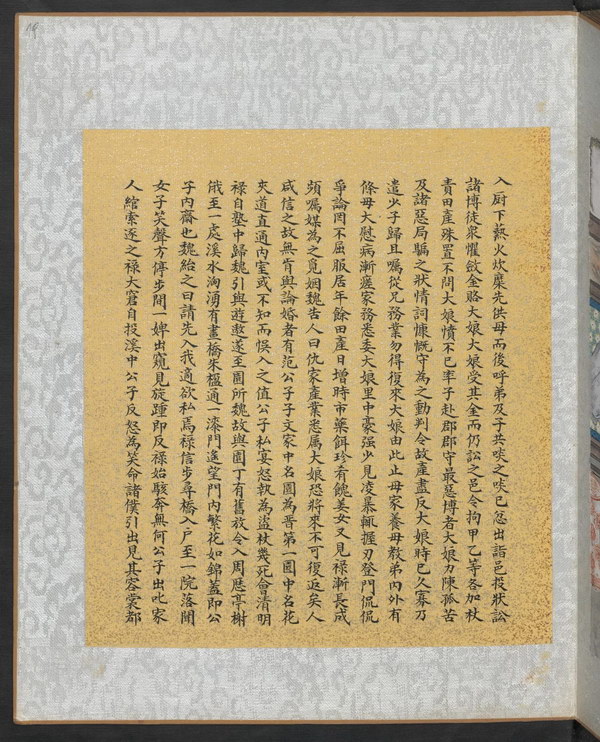 入厨下爇火炊糜先供母而後呼弟及子共啖之啖已忿出詣邑投狀訟
諸博徒衆懼斂金賂大娘大娘受其金而仍訟之邑令拘甲乙等各加杖
責田產殊置不問大娘憤不已率子赴郡郡守最惡博者大娘力陳孤苦
及諸惡局騙之狀情詞慷慨守為之動判令故產盡反大娘時已久寡乃
遣少子歸且囑從兄務業勿得復來大娘由此止母家養母教弟內外有
條母大慰病漸瘥家務悉委大娘里中豪强少見凌暴輒握刃登門侃侃
爭論罔不屈服居年餘田產日增時市藥餌珍肴餽姜女又見祿漸長成
頻囑媒為之覓姻魏告人曰仇家產業悉属大娘恐將來不可復返矣人
咸信之故無肯與論婚者有范公子子文家中名園為晉第一園中名花
夾道直通內室或不知而悮入之值公子私宴怒執為盜杖幾死會清明
祿自塾中歸魏引與遊遨遂至園所魏故與園丁有舊放令入周歷亭榭
俄至一處溪水洶湧有畫橋朱檻通一漆門遙望門內繁花如錦蓋即公
子內齋也魏紿之曰請先入我適欲私焉祿信步尋橋入戶至一院落聞
女子笑聲方停步間一婢出窺見旋踵即反祿始駭奔無何公子出叱家
人綰索逐之祿大窘自投溪中公子反怒為笑命諸僕引出見其容裳都